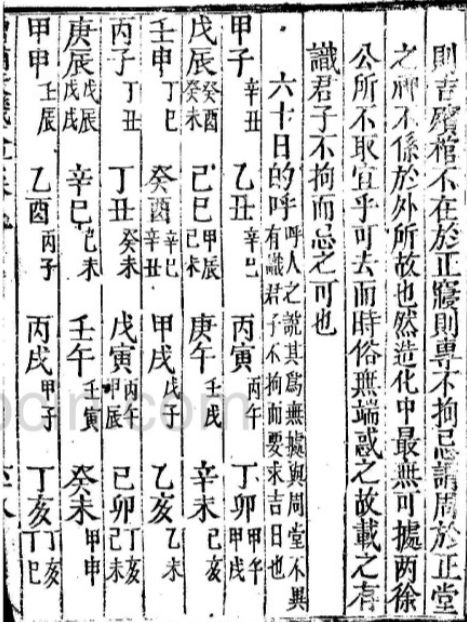 則吉殯棺不在於正寢則專不拘忌謂周於正堂
之神不係於外所故也然造化中最無可據两徐
公所不取宜乎可去而時俗無端惑之故載之存
識君子不拘而忌之可也
六十日的呼 呼人之說其爲無據與周堂不異有識君子不拘而要求吉日也
甲子 辛丑 乙丑 辛巳 丙寅 丙午 丁卯 甲午甲戌
戊辰 癸酉癸未 己巳 甲辰己未 庚午 戌 辛未 己亥
壬申 丁巳 癸酉 辛巳辛丑 甲戌 戊子 乙亥 乙未
丙子 丁丑 丁丑 癸未 戊寅 丙午甲辰 己卯 丁亥己未
庚辰 戊辰戊戌 辛巳 己未 壬午 壬寅 癸未 甲申
甲申 壬辰 乙酉 丙子 丙戌 甲子 丁亥 丁亥丁巳